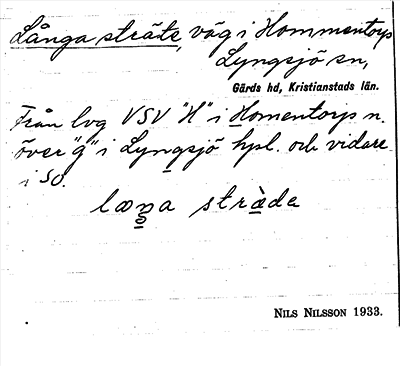 Långa sträte, väg i Hommentorps
Lyngsjö sn,
Gärds hd, Kristianstads län.
Från lvg VSV "H" i Homentorps n.
över "g" i Lyngsjö hpl. och vidare
i SO.
laŋa stràde
NILS NILSSON 1933.